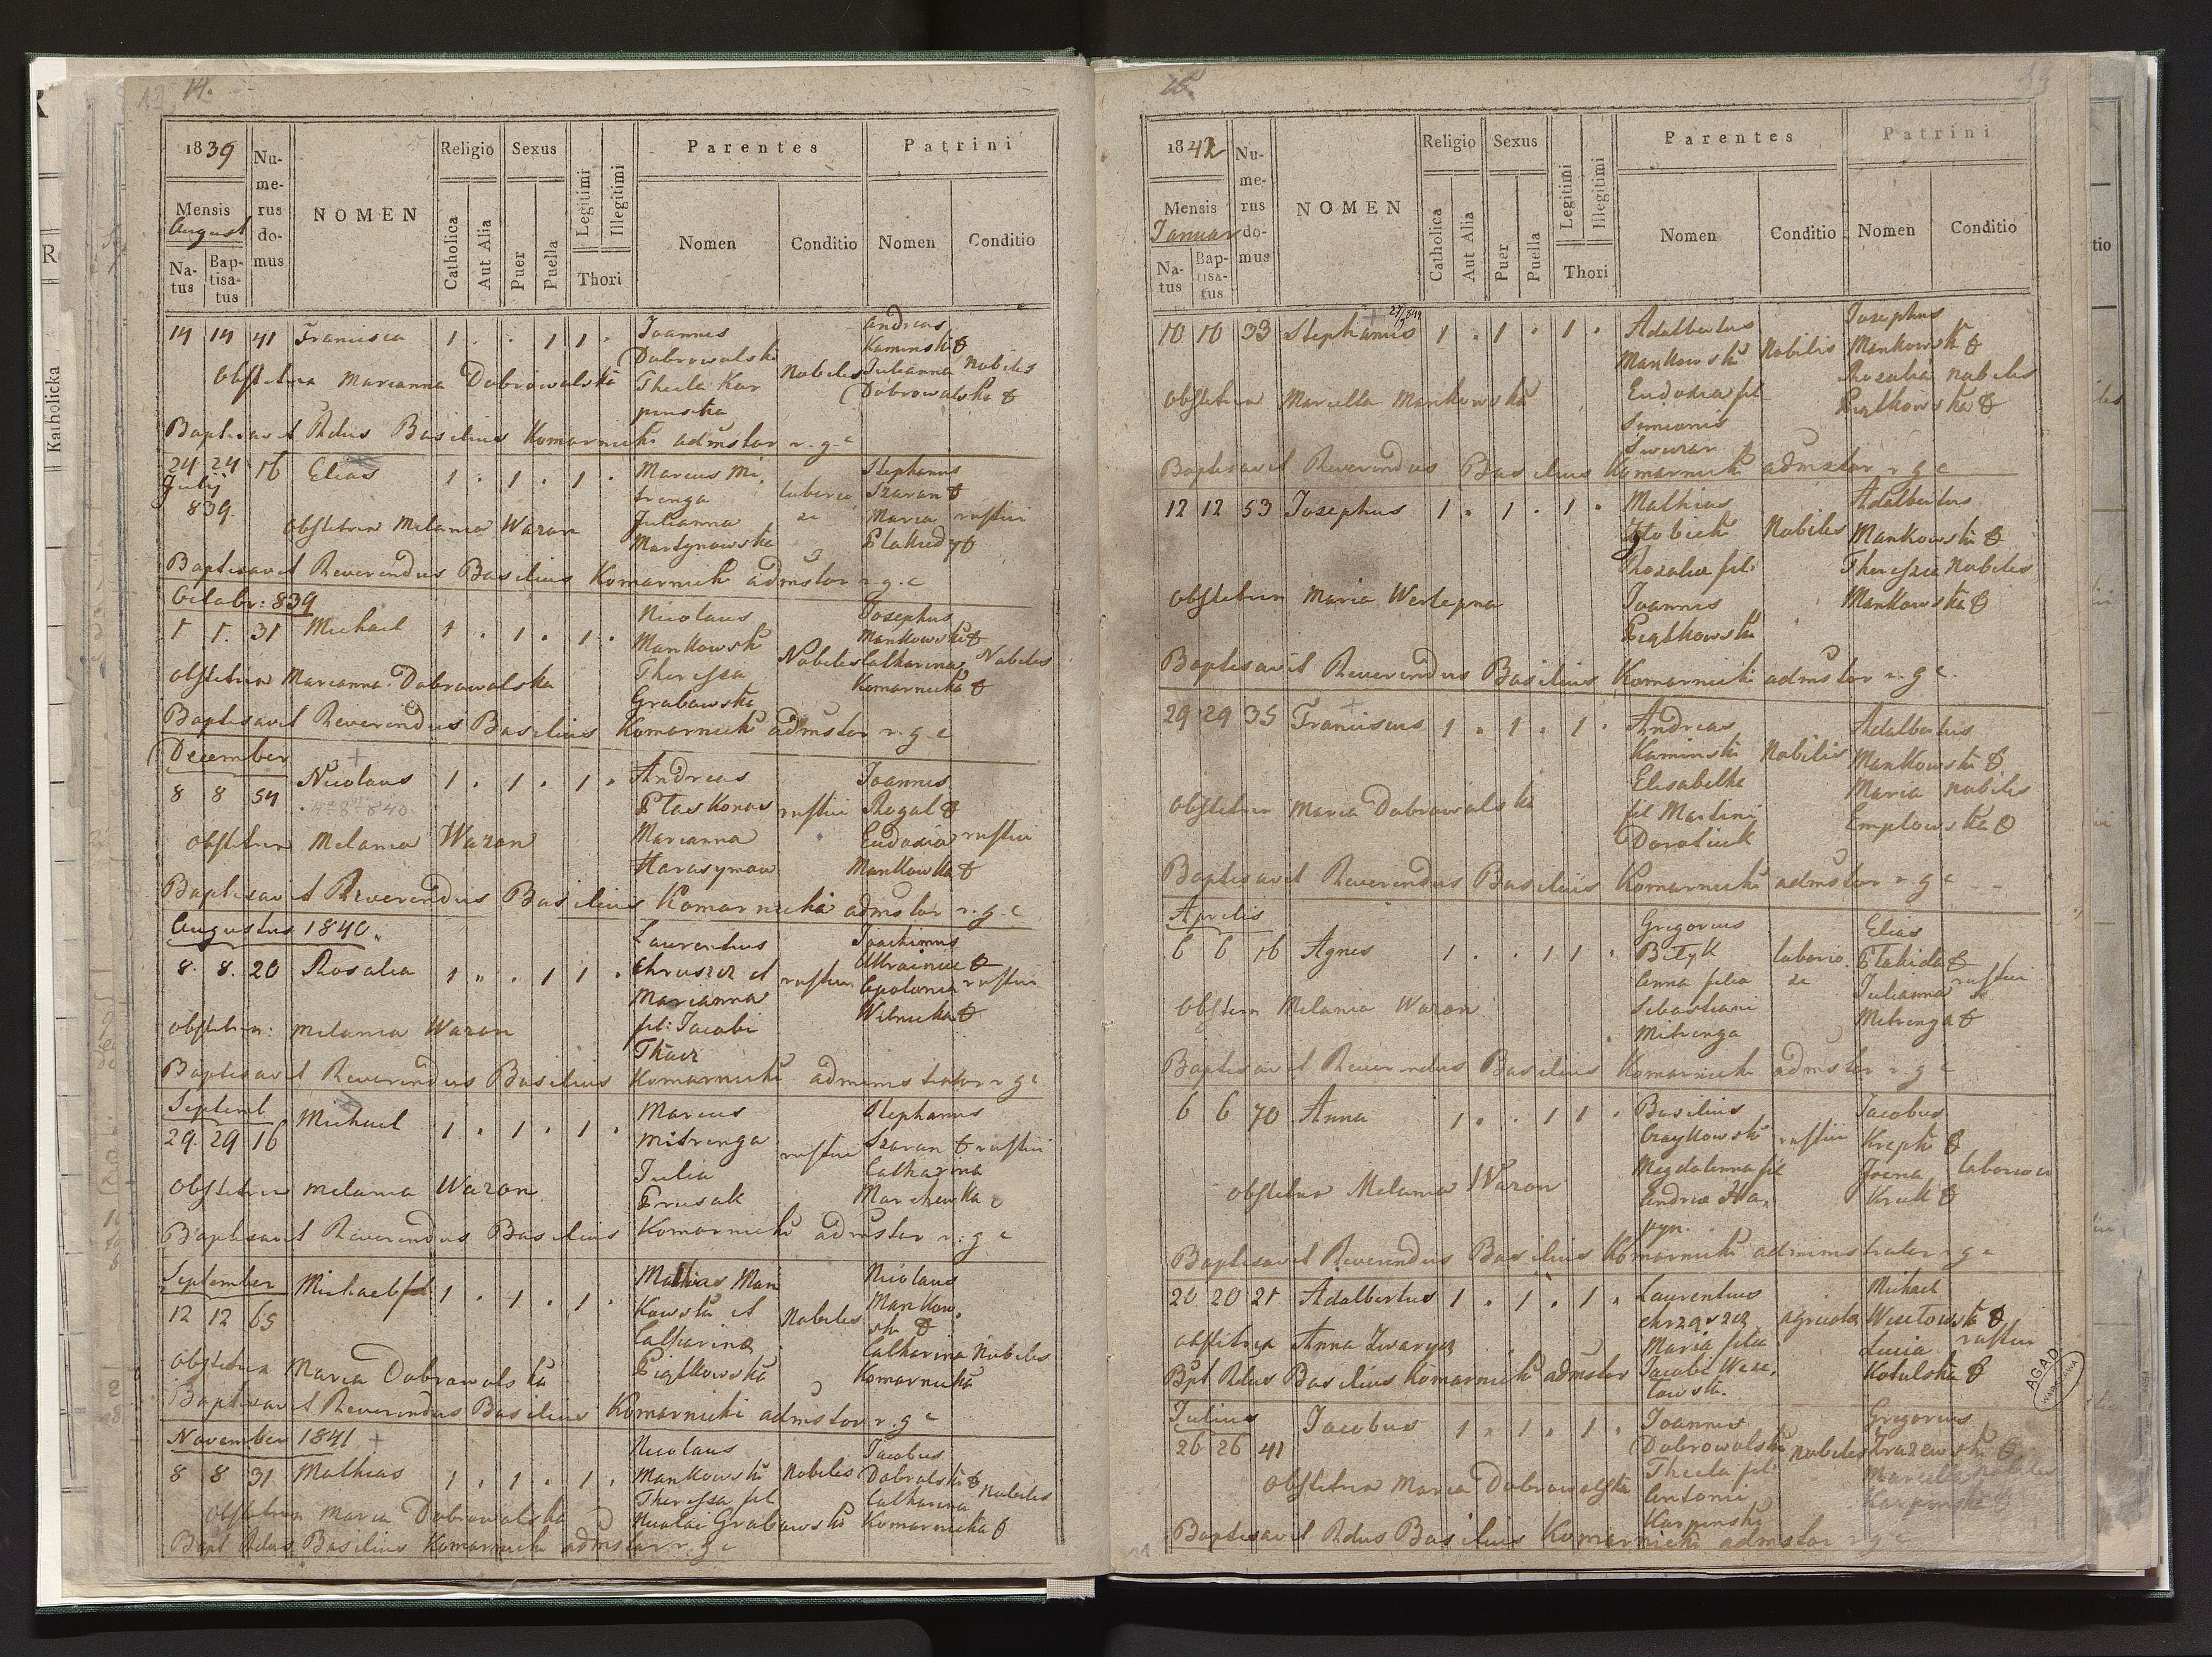 14.
1839
Mensis
August
Na-
tus
Bap-
tisa-
tus
Nu-
me-
rus
do-
mus
NOMEN
Religio
Catholica
Aut Alia
Sexus
Puer
Puella
Legitimi
Illegitimi
Thori
Parentes
Nomen
Conditio
Patrini
Nomen
Conditio
14 14 41 Francisca 1 . . 1 1 . Joannes
Dobrowolski
Thecla Kar
pinska
Nobiles
Andreas
Kaminski
Julianna
Dobrowolska
Nobiles
Obstetrix Marianna Dobrowolska
Baptisavit Rdus Basilius Komarnicki admstor r. g. c
24 24 16 Elias 1 . 1 . 1 . Marcus Mi
Julij
839.
trenga
Julianna
Martynowska
laborio
si
Stephanus
Szaran
Maria
Plakidy
rustici
Obstetrix Melania Wazon
Baptisavit Reverendus Basilius Komarnicki admstor r. g. c
Octobr: 839
1 1. 31 Michael 1 . 1 . 1 . Nicolaus
Mankowski
Theressa
Grabowska
Nobiles
Josephus
Mankowski
Catharina
Komarnicka
Nobiles
Obstetrix Marianna Dobrowolska
Baptisavit Reverendus Basilius Komarnicki admstor r. g. c
December
8 8 54 Nicolaus 1 . 1 . 1 . Andreas
Marianna
Harasymow
rustici
Joannes
Rogal
Eudoxia
Mankowska
rustici
Obstetrix Melania Wazon
Baptisavit Reverendus Basilius Komarnicki admstor r. g. c
Augustus 1840.
8. 8. 20 Rosalia 1 . . 1 1 . Laurentius
et
Marianna
fil: Jacobi
Tkacz
rustici
Joachimus
Apolonia
Wilnicka
rustici
Obstetrix: Melania Wazon
Baptisavit Reverendus Basilius Komarnicki administrator r g c
Septembr
29. 29 16 Michael 1 . 1 . 1 . Marcus
Mitrenga
Julia
Prusak
rustici
Stephanus
Szaran
Catharina
Marchewka
rustici
Obstetrix Melania Wazon
Baptisavit Reverendus Basilius Komarnicki admstor r. g c
September
12 12 65 Michael 1 . 1 . 1 . Mathias Man
kowski et
Catharina
Piątkowska
Nobiles
Nicolaus
Mankow
ski
Catharina
Komarnicka
Nobiles
Obstetrix Maria Dobrowolska
Baptisavit Reverendus Basilius Komarnicki admstor r. g c
November 1841
8 8 31 Mathias 1 . 1 . 1 . Nicolaus
Mankowski
Theressa fil
Nicolai Grabowski
Nobiles
Jacobus
Dobrolski
Catharina
Komarnicka
Nobiles
Obstetrix Maria Dobrowolska
Bapt Rdus Basilius Komarnicki admstor r. g c
1842
Mensis
Januar
Na-
tus
Bap-
tisa-
tus
Nu-
me-
rus
do-
mus
NOMEN
Religio
Catholica
Aut Alia
Sexus
Puer
Puella
Legitimi
Illegitimi
Thori
Parentes
Nomen
Conditio
Patrini
Nomen
Conditio
10 10 33 Stephanus 1 . 1 . 1 . Adalbertus
Mankowski
Eudoxia fil
Simionis
Nobilis
Josephus
Mankowski
Rozalia
Piątkowska
nobiles
Obstetrix Marcella Mankowska
Baptisavit Reverendus Basilius Komarnicki admstor r g c
12 12 53 Josephus 1 . 1 . 1 . Mathias
Rozalia fil:
Joannis
Piątkowski
Nobiles
Adalbertus
Mankowski
Theressia
Mankowska
Nobiles
Obstetrix Maria Wertepna
Baptisavit Reverendus Basilius Komarnicki admstor r. g c.
29 29 35 Franciscus 1 . 1 . 1 . Andreas
Kaminski
Elisabetha
fil Martini
Nobilis
Adalbertus
Mankowski
Maria
Emplowska
nobilis
Obstetrix Maria Dobrowolska
Baptisavit Reverendus Basilius Komarnicki admstor r g c
Aprilis
6 6 16 Agnes 1 . . 1 1 . Gregorius
Bilyk
Anna filia
Sebastiani
Mitrenga
laborio
si
Elias
Plakida
Julianna
Mitrenga
rustici
Obstetrix Melania Wazon
Baptisavit Reverendus Basilius Komarnicki admstor r. g c
6 6 70 Anna 1 . . 1 1 . Basilius
Czaykowski
Magdalenna fil
Andrea Ha
pyn.
rustici
Jacobus
Krepki
Kruk
laboriosi
Obstetrix Melania Wazon
Baptisavit Reverendus Basilius Komarnicki administrator r g c
20 20 21 Adalbertus 1 . 1 . 1 . Laurentius
Maria filia
Jacobi Wese
lowski.
agricola
Michael
Wesełowski
Lucia
Kotulska
rustici
Obstetrix Anna Zwarycz
Bpt Rdus Basilius Komarnicki admstor
Julius
26 26 41 Jacobus 1 . 1 . 1 . Joannes
Dobrowolski
Thecla fil
Antoni
Karpinski
nobiles
Gregorius
Marcella
Karpinska
nobiles
Obstetrix Maria Dobrowolska
Baptisavit Rdus Basilius Komarnicki admstor r g c
AGAD
WARSZAWA
Katholicka